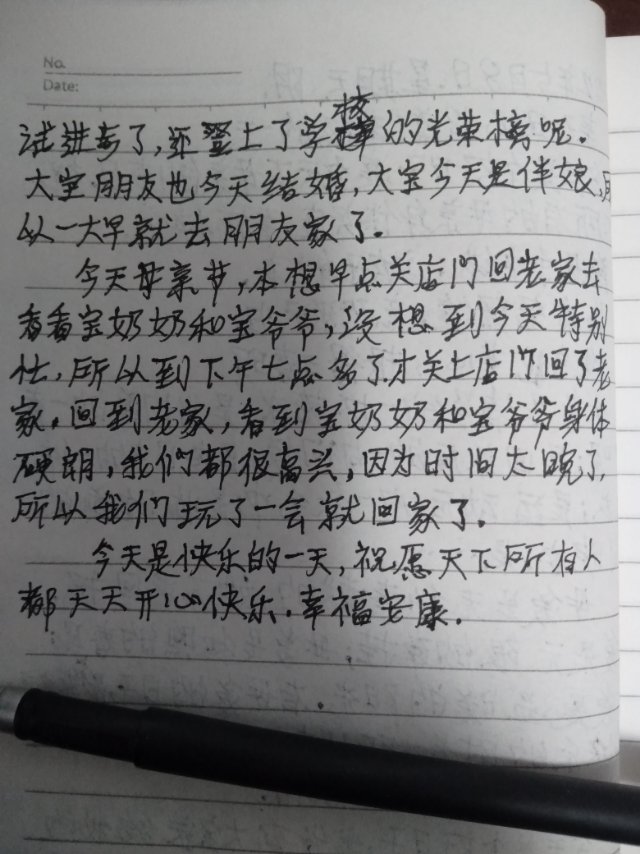 No.
Date:
试进步了,还登上了学校的光荣榜呢。
大宝朋友也今天结婚,大宝今天是伴娘,所
以一大早就去朋友家了。
今天母亲节,本想早点关店门回老家去
看看宝奶奶和宝爷爷,没想到今天特别
忙,所以到下午七点多了才关上店门回了老
家。回到老家,看到宝奶奶和宝爷爷身体
硬朗,我们都很高兴,因为时间太晚了,
所以我们玩了一会就回家了。
今天是快乐的一天,祝愿天下所有人
都天天开心快乐.幸福安康.